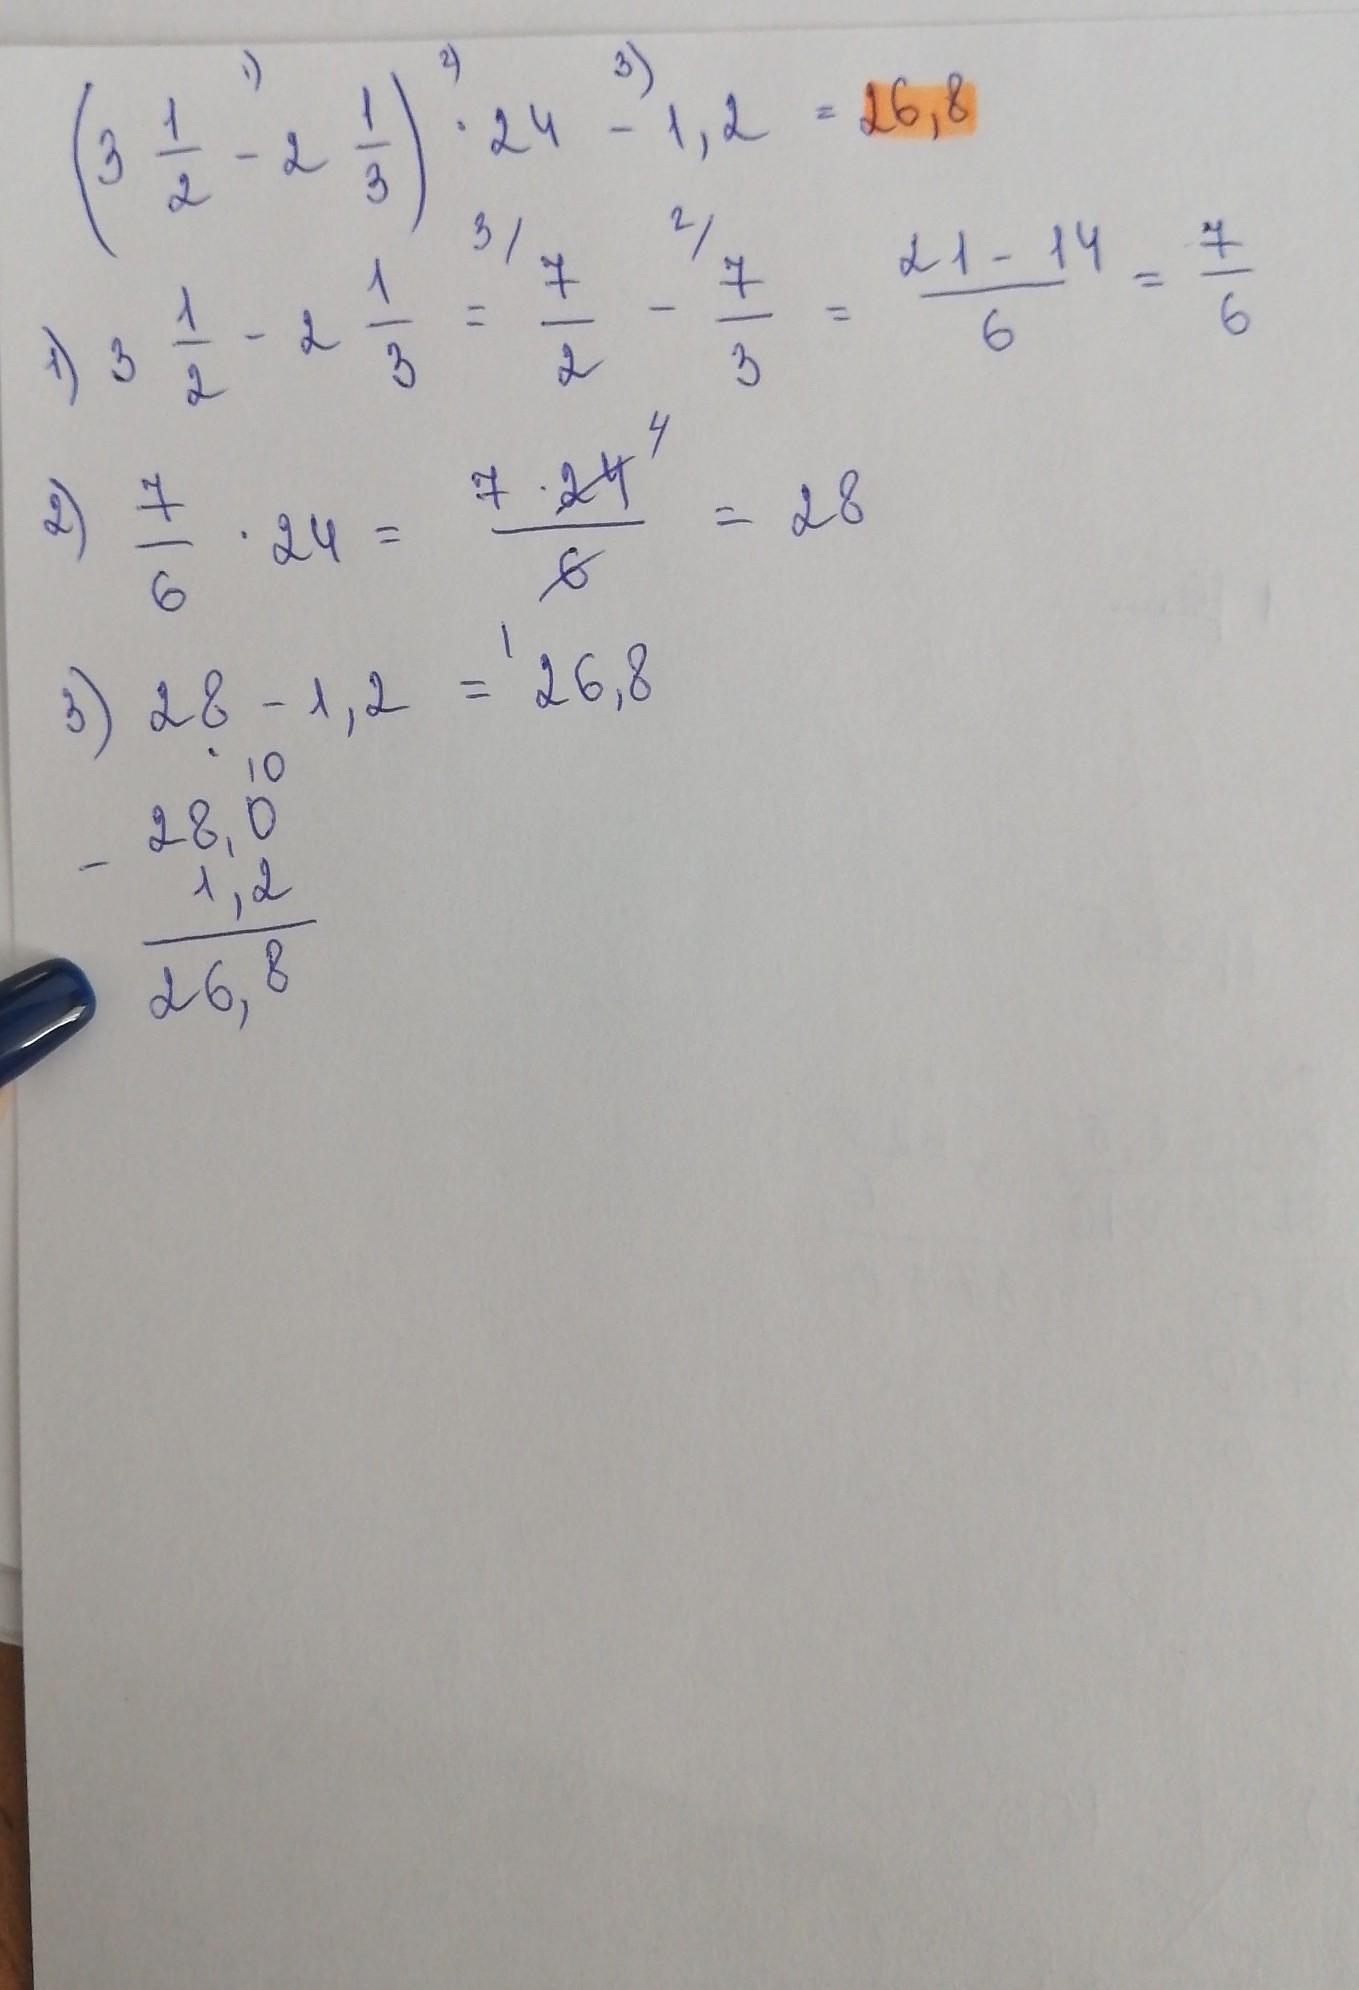 1) 2) 3)
(3 1/2 - 2 1/3) · 24 - 1,2 = 26,8
1) 3 1/2 - 2 1/3 = 3/ 7/2 - 2/ 7/3 = 21-14/6 = 7/6
2) 7/6 · 24 = 7 · 24 4/6 1 = 28
3) 28 - 1,2 = 26,8
10
28,0
- 1,2
26,8